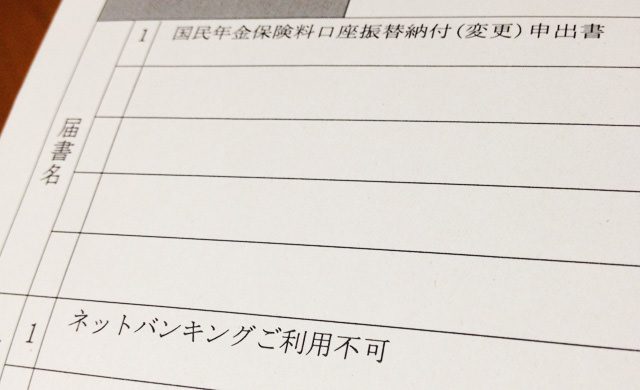 1 国民年金保険料口座振替納付(変更)申出書
届書名
1 ネットバンキングご利用不可